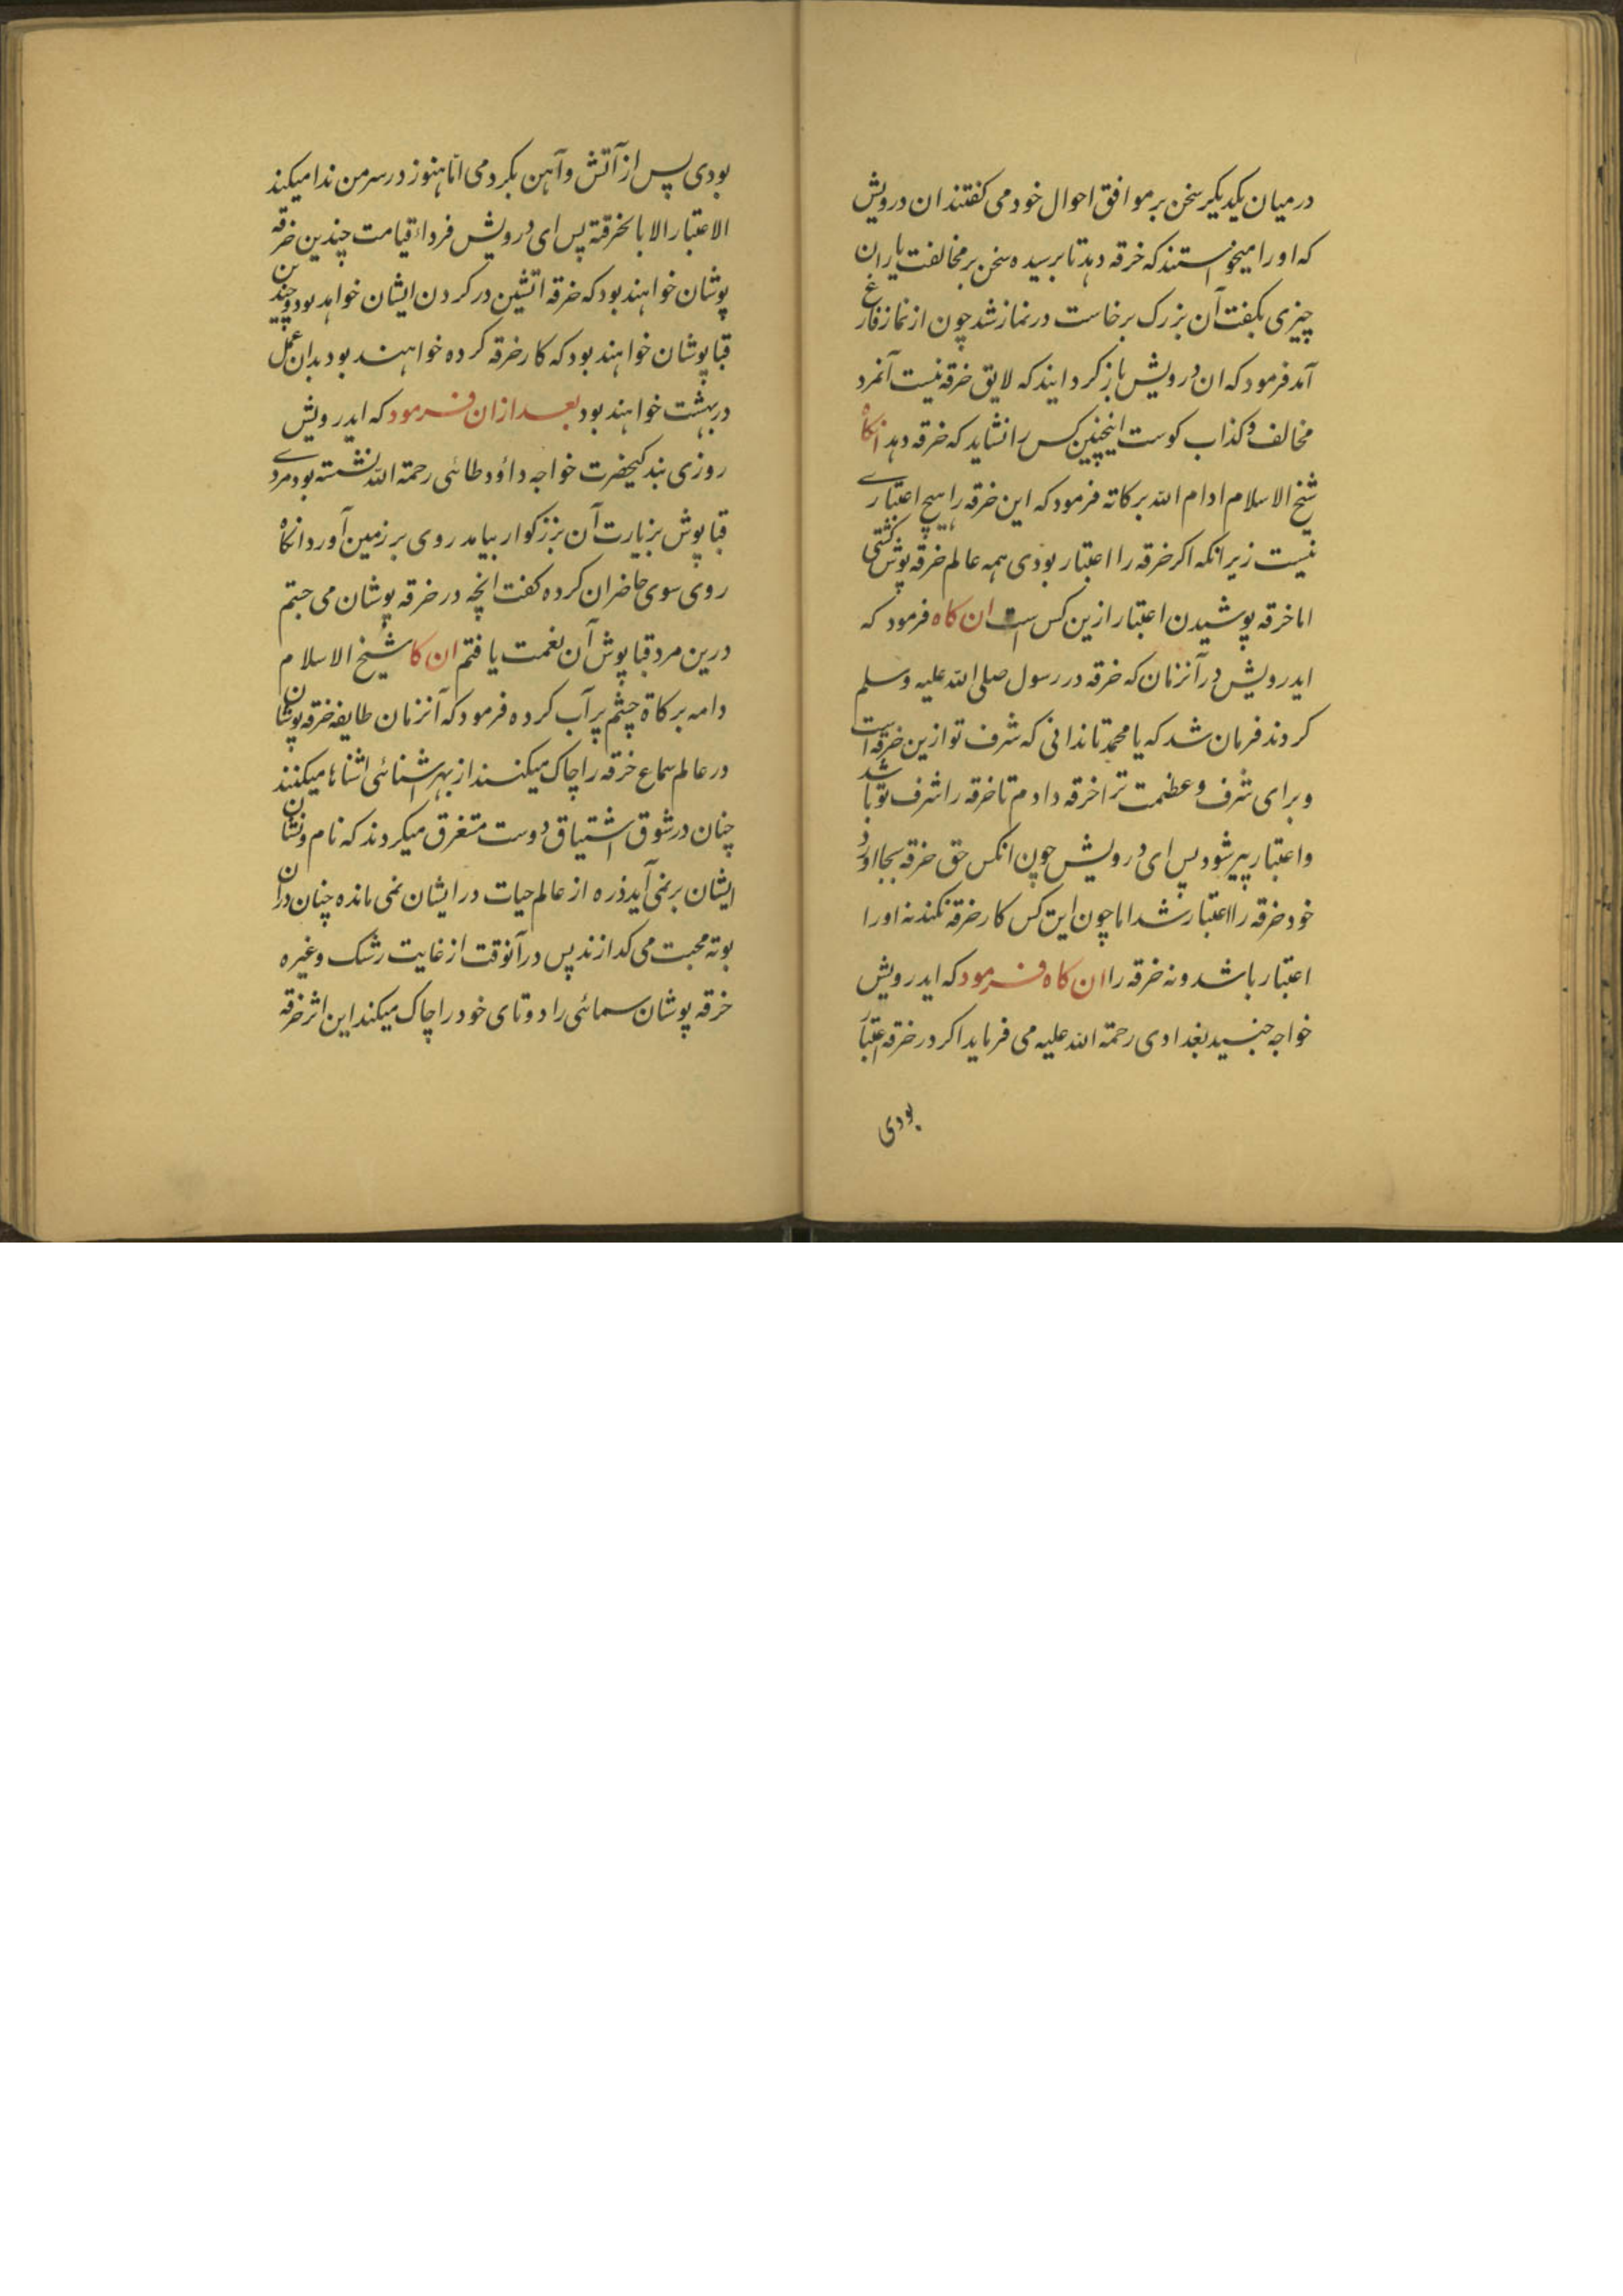 درمیان یکدیکر سخن بر موافق احوال خود می کفتند ان درویش
که او را میخواستند که خرقه دهد تا برسیده سخن بر مخالفت یاران
چیزی بکفت آن بزرک برخاست در نماز شد چون از نماز فارغ
آمد فرمود که ان درویش باز کردایند که لایق خرقه نیست آنمرد
مخالف و کذاب کوست اینچنین کس را نشاید که خرقه دهد انکاه
شیخ الاسلام ادام الله برکاته فرمود که این خرقه را هیچ اعتباری
نیست زیرانکه اکر خرقه را اعتبار بودی همه عالم خرقه پوش کشتی
اما خرقه پوشیدن اعتبار ازین کس است ان کاه فرمود که
ایدرویش در آنزمان که خرقه در رسول صلی الله علیه وسلم
کردند فرمان شد که یا محمد تا ندانی که شرف تو ازین خرقه است
و برای شرف و عظمت ترا خرقه دادم تا خرقه را شرف تو باشد
و اعتبار پیر شود پس ای درویش چون انکس حق خرقه بجا اورد
خود خرقه را اعتبار شد اما چون این کس کار خرقه نکند نه او را
اعتبار باشد و نه خرقه را ان کاه فرمود که ایدرویش
خواجه جنید بغدادی رحمة الله علیه می فرماید اکر در خرقه اعتبار
بودی
بودی پس از آتش و آهن بکردمی اما هنوز در سر من ندا میکند
الاعتبار الا بالخرقة پس ای درویش فرداء قیامت چندین خرقه
پوشان خواهند بود که خرقه اتشین در کردن ایشان خواهد بود و چندین
قبا پوشان خواهند بود که کار خرقه کرده خواهند بود بدان عمل
در بهشت خواهند بود بعد ازان فرمود که ایدرویش
روزی بندکیحضرت خواجه داؤد طائی رحمة الله نشسته بود مردے
قبا پوش بزیارت آن بزرکوار بیامد روی بر زمین آورد انکاه
روی سوی حاضران کرده کفت انچه در خرقه پوشان می جستم
درین مرد قبا پوش آن نعمت یافتم ان کا شیخ الاسلام
دامه برکاة چشم پر آب کرده فرمود که آنزمان طایفه خرقه پوشان
در عالم سماع خرقه را چاک میکنند از بهر اشنائی اشناها میکنند
چنان در شوق اشتیاق دوست متغرق میکردند که نام و نشان
ایشان برنمی آید ذره از عالم حیات در ایشان نمی مانده چنان دران
بوته محبت می کدازند پس در آنوقت از غایت رشک و غیره
خرقه پوشان سمائی را دوتای خود را چاک میکند این اثر خرقه